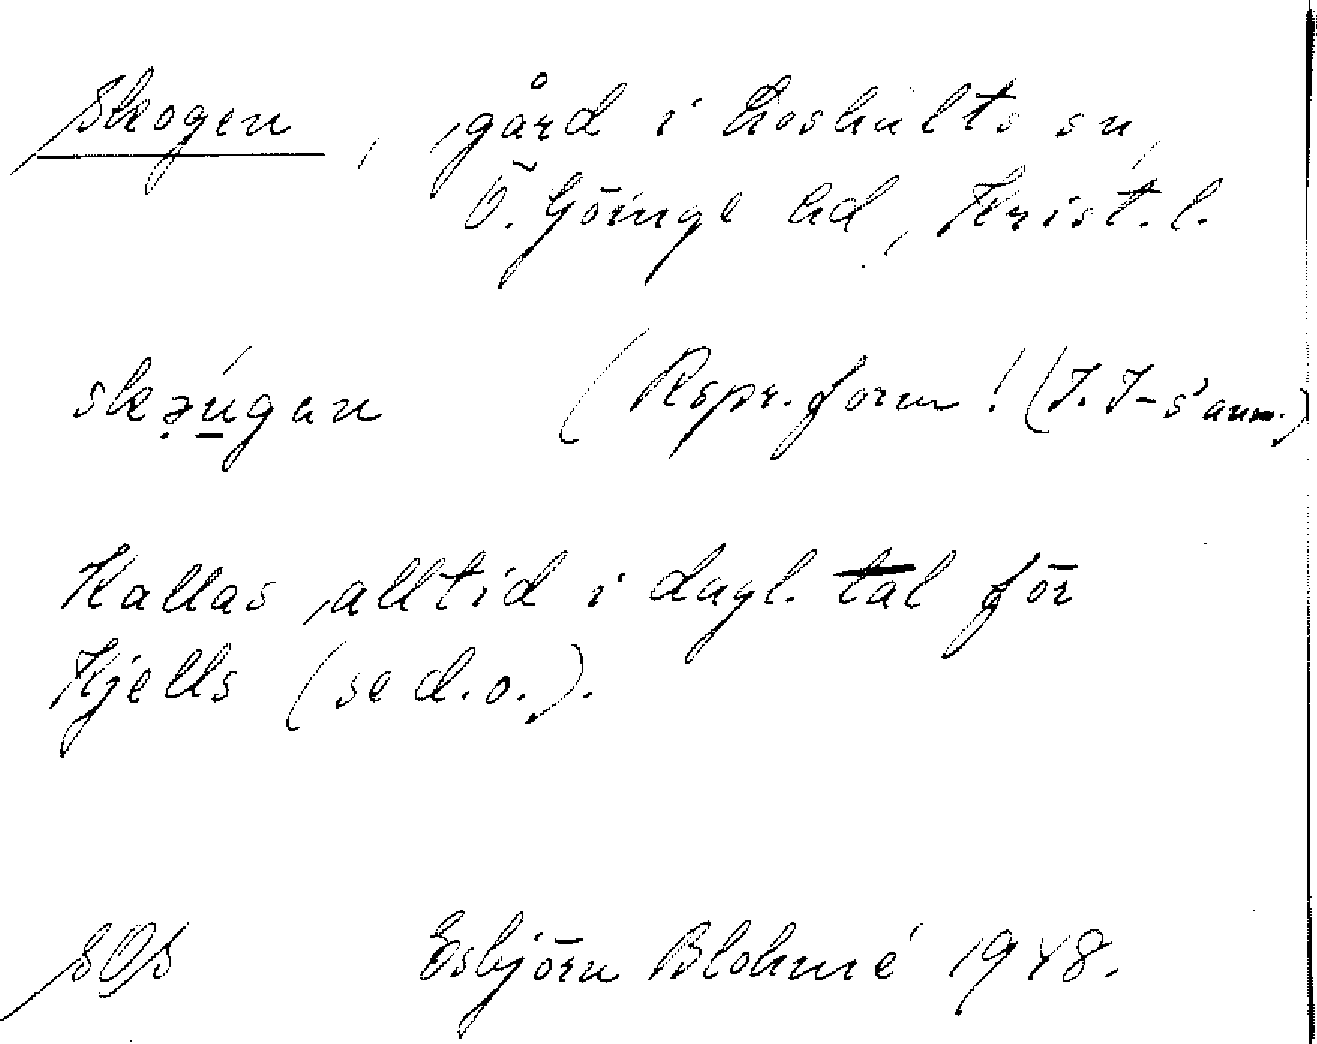 Skogen, gård i Loshults sn,
Ö. Göinge hd, Krist. l.
skə̣ú̲gan (Repr. form! (I. I-s' anm.)
Kallas alltid i dagl. tal för
Kjells (se d. o.).
SOS Esbjörn Blohmé 1948.